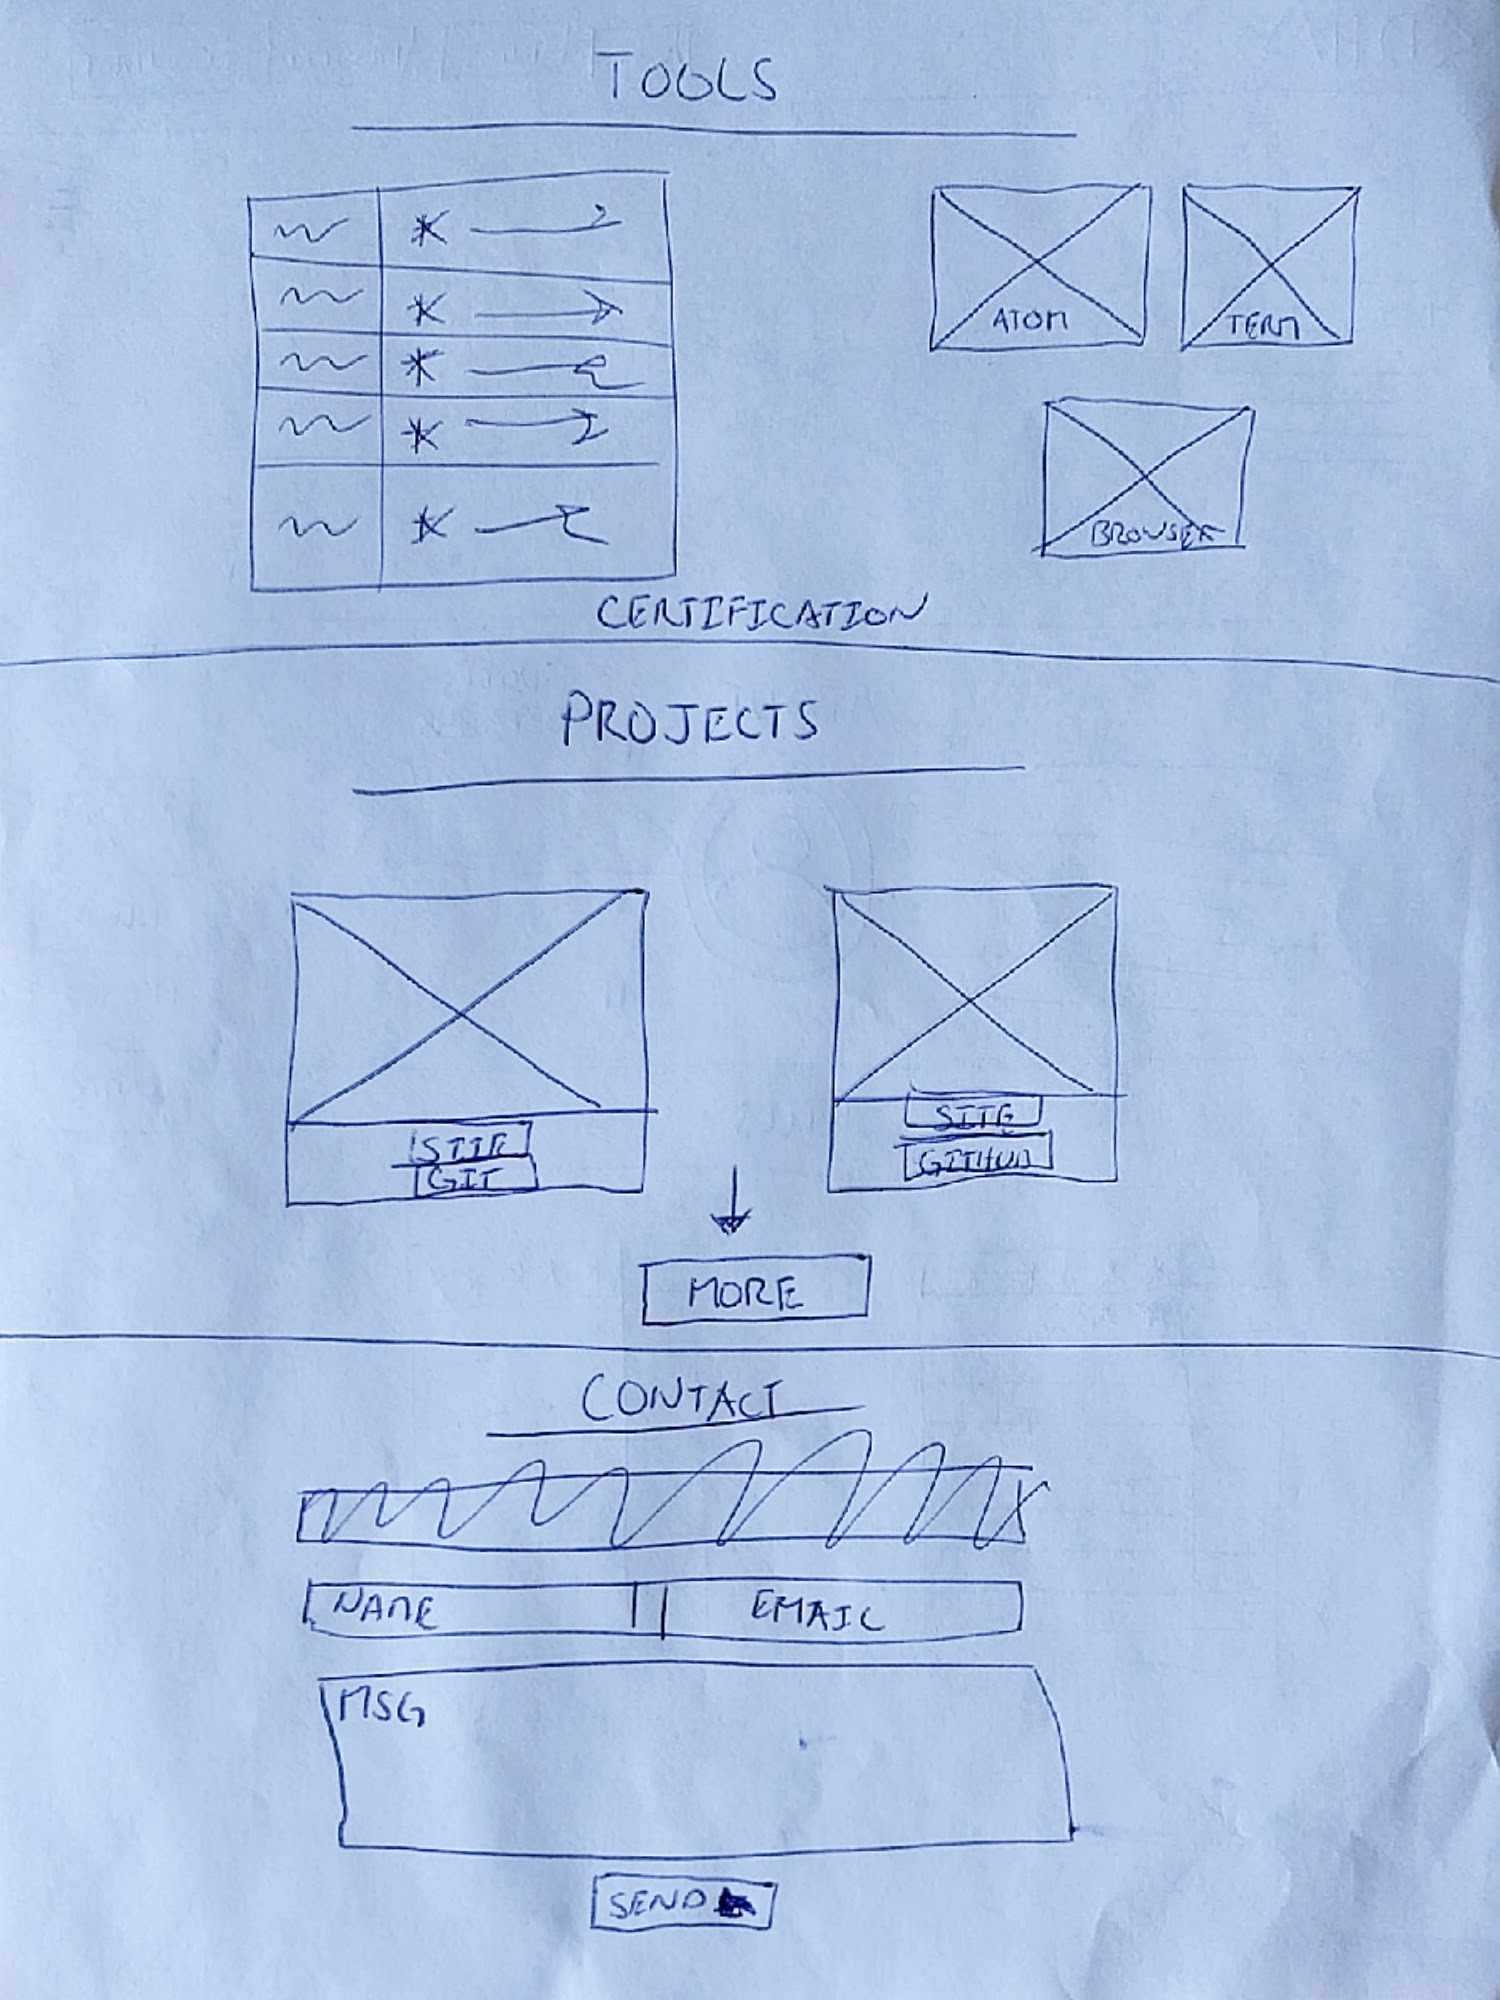 TOOLS
ATOM TERM
BROWSER
CERTIFICATION
PROJECTS
SITE SITE
GIT GITHUB
MORE
CONTACT
NAME EMAIL
MSG
SEND